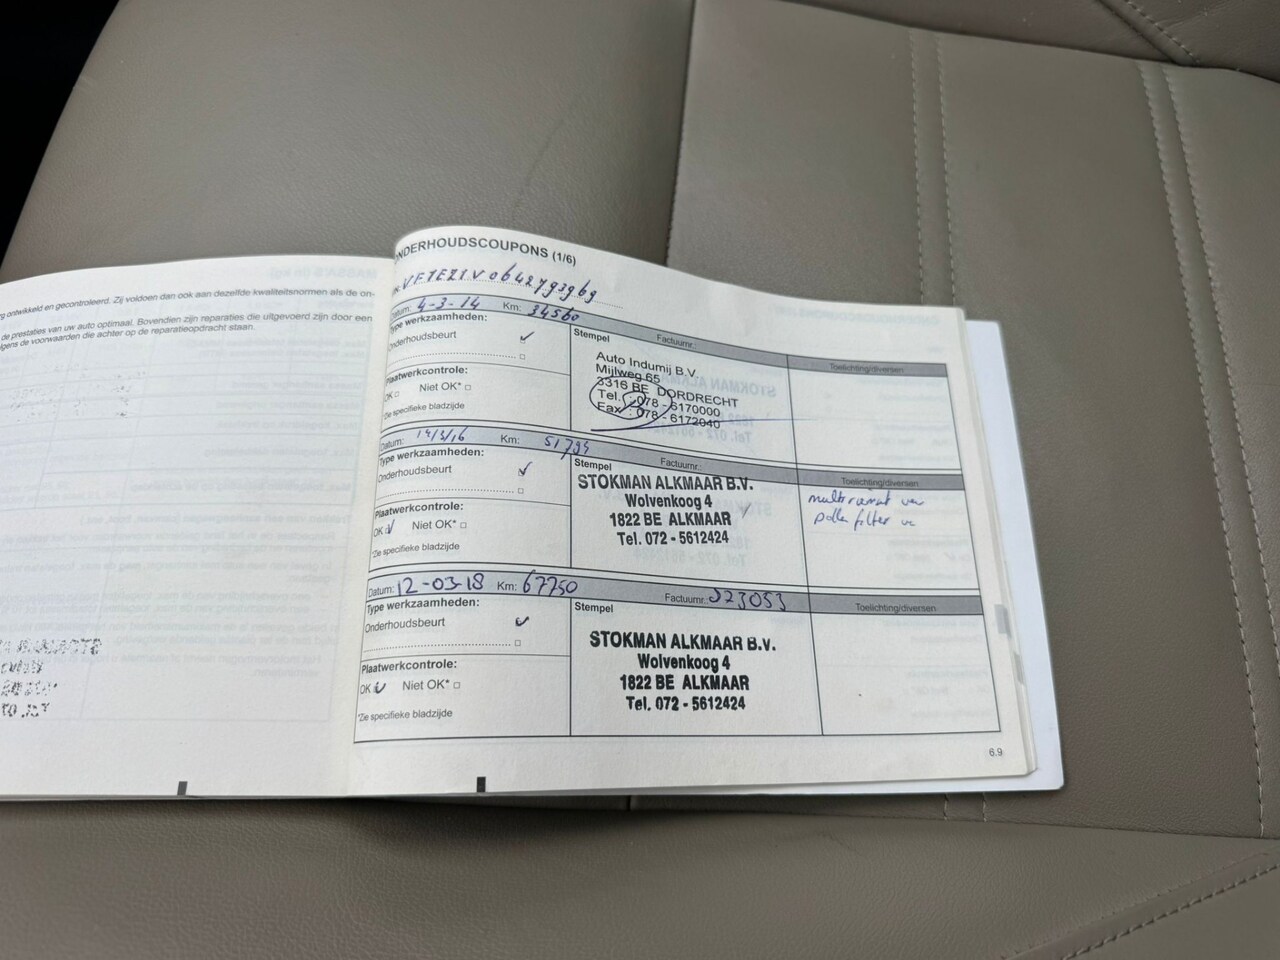 g ontwikkeld en gecontroleerd. Zij voldoen dan ook aan dezelfde kwaliteitsnormen als de on-
de prestaties van uw auto optimaal. Bovendien zijn reparaties die uitgevoerd zijn door een
lgens de voorwaarden die achter op de reparatieopdracht staan.
NDERHOUDSCOUPONS (1/6)
Datum: 4-3-14 Km: 34560
Type werkzaamheden:
Onderhoudsbeurt
Plaatwerkcontrole:
OK □ Niet OK* □
*Zie specifieke bladzijde
Stempel Factuurnr.:
Auto Indumij B.V.
Mijlweg 65
3316 BE DORDRECHT
Tel. : 078 - 6170000
Fax : 078 - 6172040
Toelichting/diversen
Datum: 14/3/16 Km: 51794
Type werkzaamheden:
Onderhoudsbeurt
Plaatwerkcontrole:
OK Niet OK* □
*Zie specifieke bladzijde
Stempel Factuurnr.:
STOKMAN ALKMAAR B.V.
Wolvenkoog 4
1822 BE ALKMAAR
Tel. 072 - 5612424
Toelichting/diversen
filter
Datum: 12-03-18 Km: 67750
Type werkzaamheden:
Onderhoudsbeurt
Plaatwerkcontrole:
OK Niet OK* □
*Zie specifieke bladzijde
Factuurnr.: 523053
Stempel
STOKMAN ALKMAAR B.V.
Wolvenkoog 4
1822 BE ALKMAAR
Tel. 072 - 5612424
Toelichting/diversen
6.9